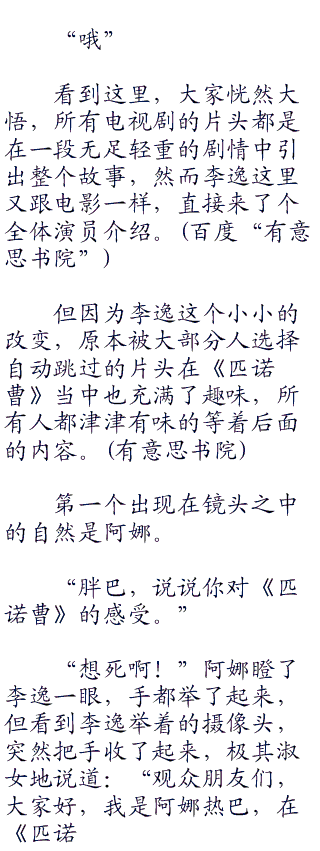 “哦”
看到这里，大家恍然大
悟，所有电视剧的片头都是
在一段无足轻重的剧情中引
出整个故事，然而李逸这里
又跟电影一样，直接来了个
全体演员介绍。(百度“有意
思书院”)
但因为李逸这个小小的
改变，原本被大部分人选择
自动跳过的片头在《匹诺
曹》当中也充满了趣味，所
有人都津津有味的等着后面
的内容。(有意思书院)
第一个出现在镜头之中
的自然是阿娜。
“胖巴，说说你对《匹
诺曹》的感受。”
“想死啊！”阿娜瞪了
李逸一眼，手都举了起来，
但看到李逸举着的摄像头，
突然把手收了起来，极其淑
女地说道：“观众朋友们，
大家好，我是阿娜热巴，在
《匹诺